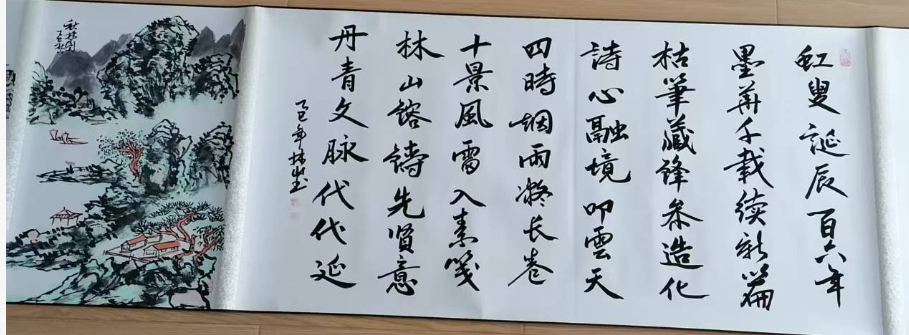 虹叟誕辰百六年
墨華千载续新篇
枯筆藏鋒参造化
詩心融境叩雲天
四時烟雨凝长卷
十景風雷入素箋
林山镕鑄先贤意
丹青文脉代代延
乙巳年林山玉
秋林图
乙巳秋